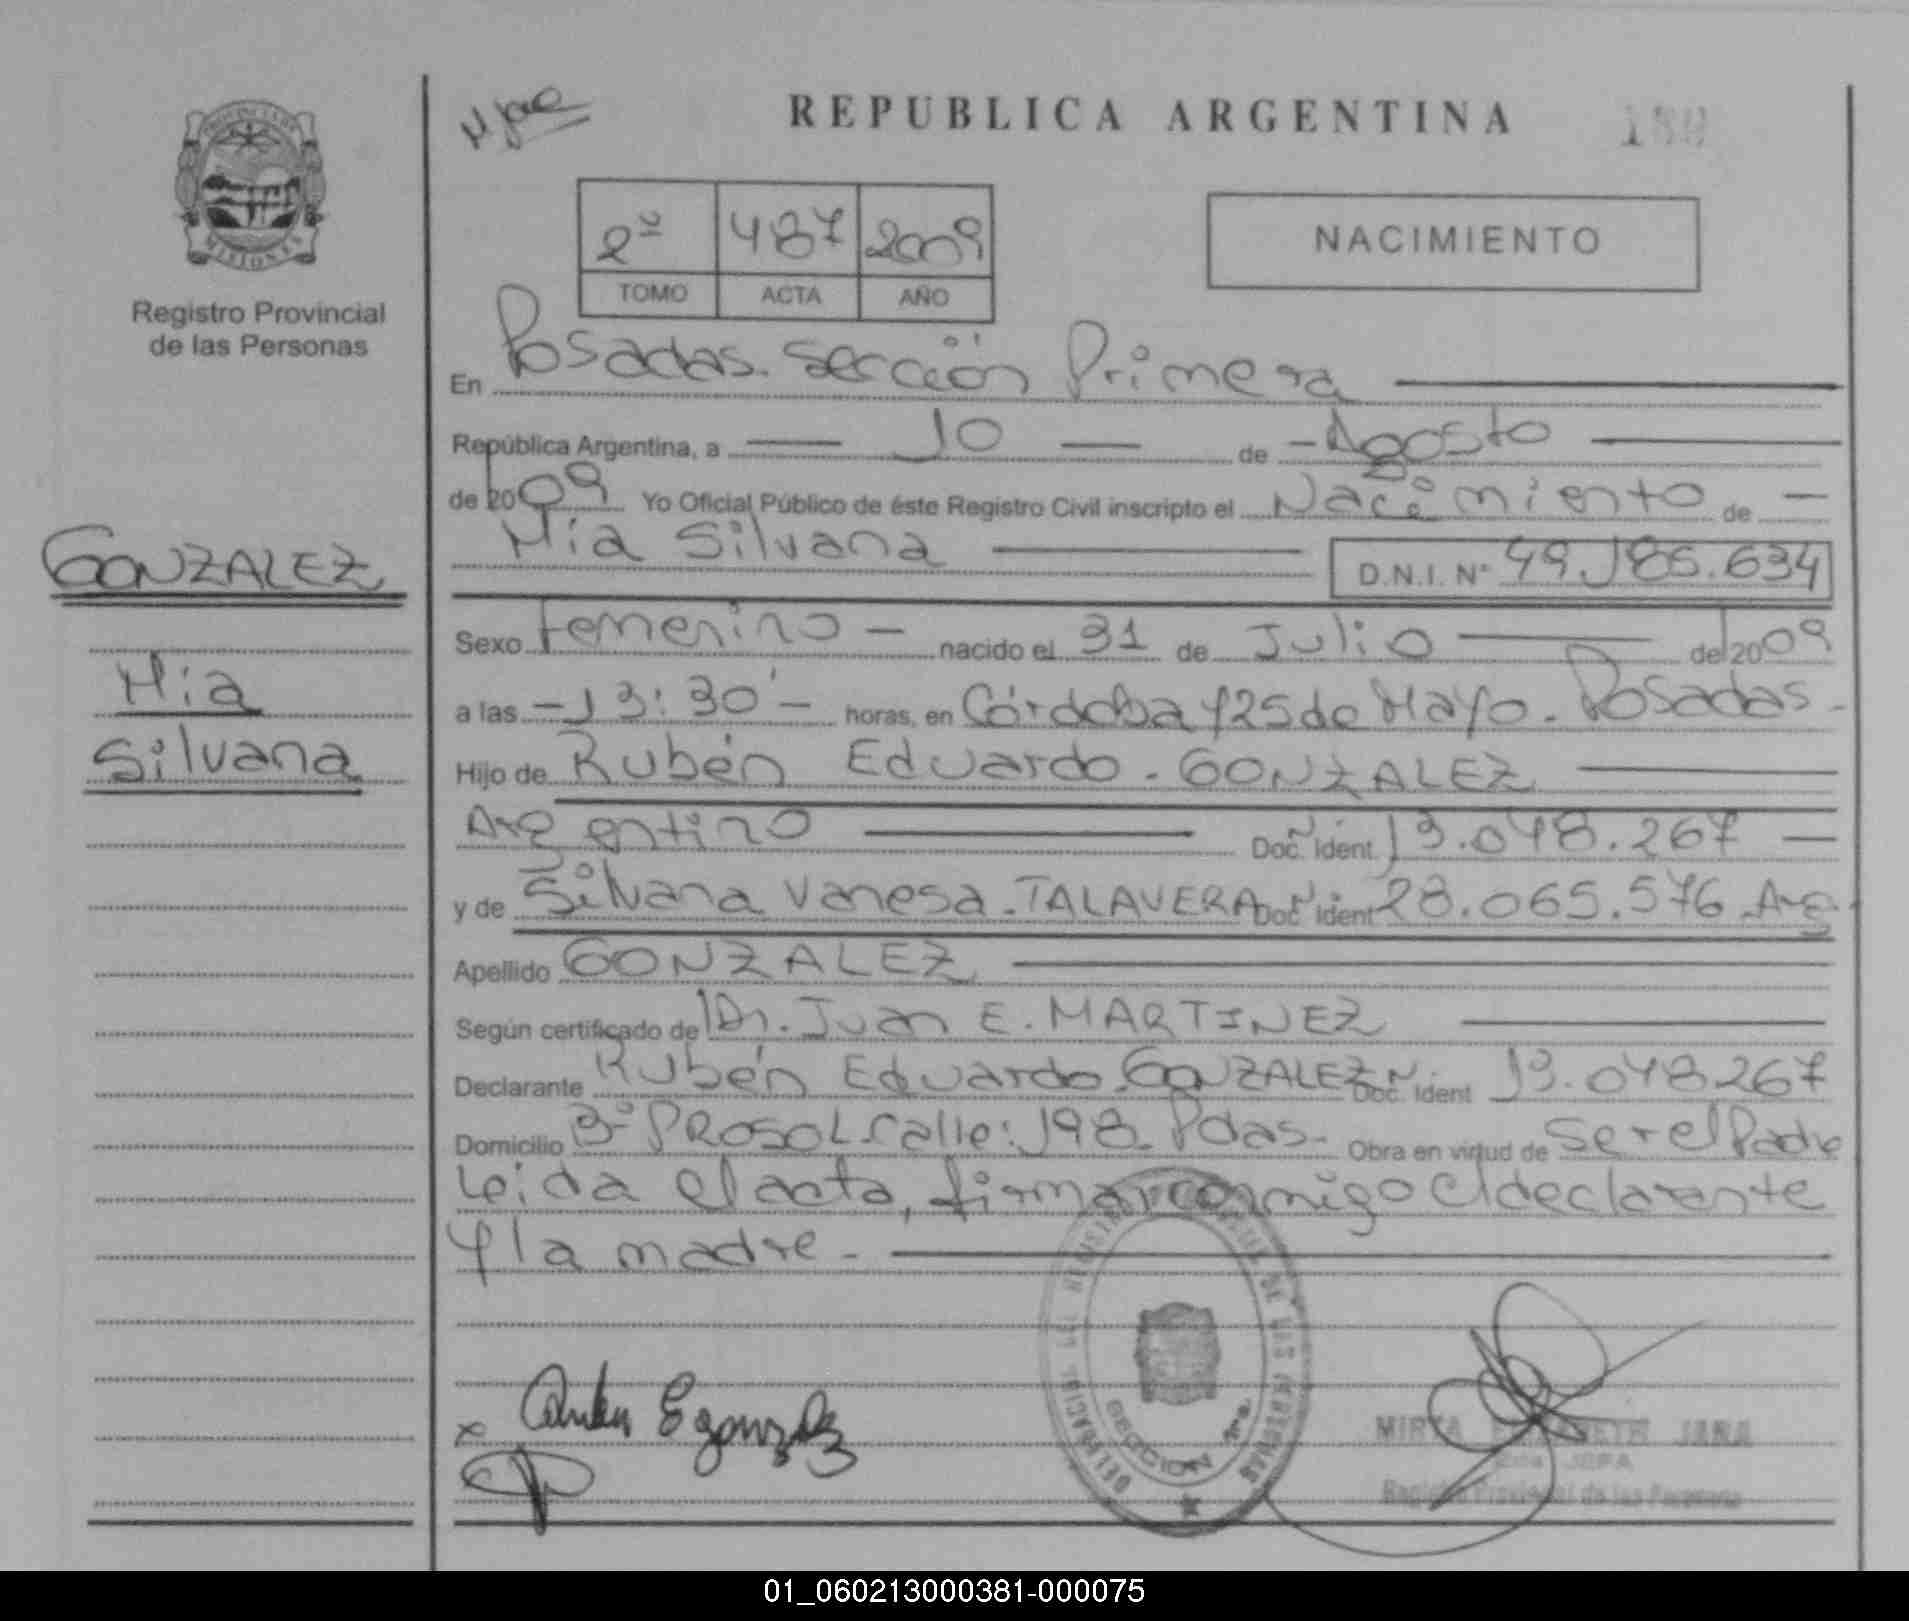 REPUBLICA ARGENTINA
PROVINCIA DE
MISIONES
Registro Provincial
de las Personas
2º 487 2009
TOMO ACTA AÑO
NACIMIENTO
En Posadas. Sección Primera
República Argentina, a 10 de Agosto
de 2009 Yo Oficial Público de éste Registro Civil inscripto el Nacimiento de
Mia Silvana D.N.I. Nº 49.185.634
GONZALEZ
Mia
Silvana
Sexo Femenino nacido el 31 de Julio de 2009
a las 13:30' horas, en Córdoba y 25 de Mayo. Posadas
Hijo de Rubén Eduardo. GONZALEZ
Argentino Doc. Ident. 13.048.267
y de Silvana Vanesa. TALAVERA Doc. Ident 28.065.576 Arg
Apellido GONZALEZ
Según certificado de Dr. Juan E. MARTINEZ
Declarante Rubén Eduardo. GONZALEZ Doc. Ident 13.048267
Domicilio Bº PROSOL Calle: 198. Pdas. Obra en virtud de Ser el Padre
Leida el acta, firman conmigo el declarante
y la madre.
SECCION 1ra.
Registro Provincial de las Personas
01_060213000381-000075